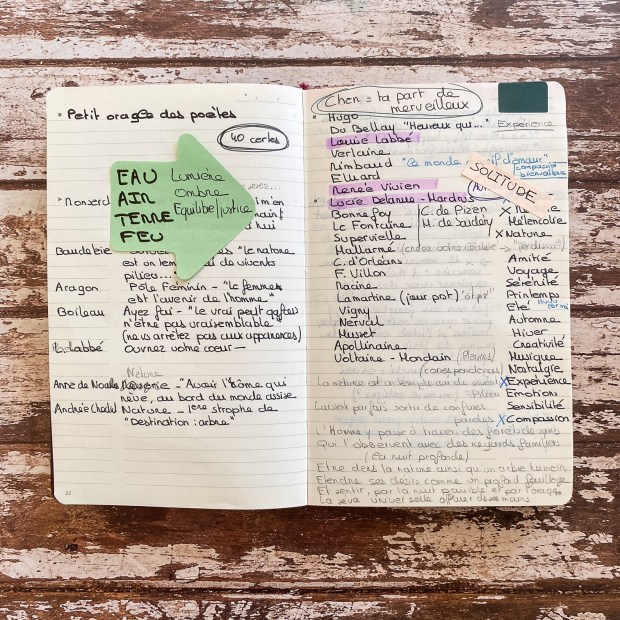 • Petit oracle des poètes
40 cartes
EAU
AIR
TERRE
FEU
Lumière
Ombre
Equilibre/justice
• Ronsard
Baudelaire
"La nature
est un temple où de vivants
piliers...
Aragon Pôle Féminin - "La femme
est l'avenir de l'homme"
Boileau Ayez foi - "Le vrai peut quelquefois
n'être pas vraisemblable"
(ne vous arrêtez pas aux apparences)
L. Labbé Ouvrez votre cœur -
Nature
Anne de Noailles - "Avoir l'âme qui
rêve, au bord du monde assise
Andrée Chedid Nature - 1ère strophe de
"Destination : arbre"
22
Chen = ta part de
merveilleux
• Hugo
Du Bellay "Heureux qui..." Expérience
Louise Labbé
Verlaine
Rimbaud "Ce monde d'amour"
compassion
bienveillance
Eluard
SOLITUDE
Renée Vivien
• Lucie Delarue-Mardrus
Bonnefoy C. de Pizan
La Fontaine M. de Scudéry
Supervielle
Mallarmé
C. d'Orléans
F. Villon
Racine
Lamartine
Vigny
Nerval
Musset
Apollinaire
Voltaire - Mondain
Mélancolie
X Nature
Amitié
Voyage
Sérénité
Printemps
Eté
Automne
Hiver
Créativité
Musique
Nostalgie
X Expérience
Emotion
Sensibilité
X Compassion
La nature est un temple où de vivants
piliers
Laissent parfois sortir de confuses
paroles
L'Homme y passe à travers des forêts de symb
Qui l'observent avec des regards familiers
Etre dans la nature ainsi qu'un arbre humain,
Etendre ses désirs comme un profond feuillage
Et sentir, par la nuit paisible et par l'orage,
La sève universelle affluer dans ses mains